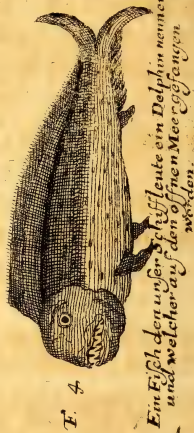 F. 4.
Ein Fisch den unser Schiffleute ein Delphin nennen
und welcher auf den offnen Meer gefangen
worden.